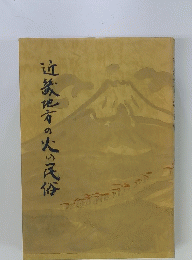 近畿地方の火の民俗